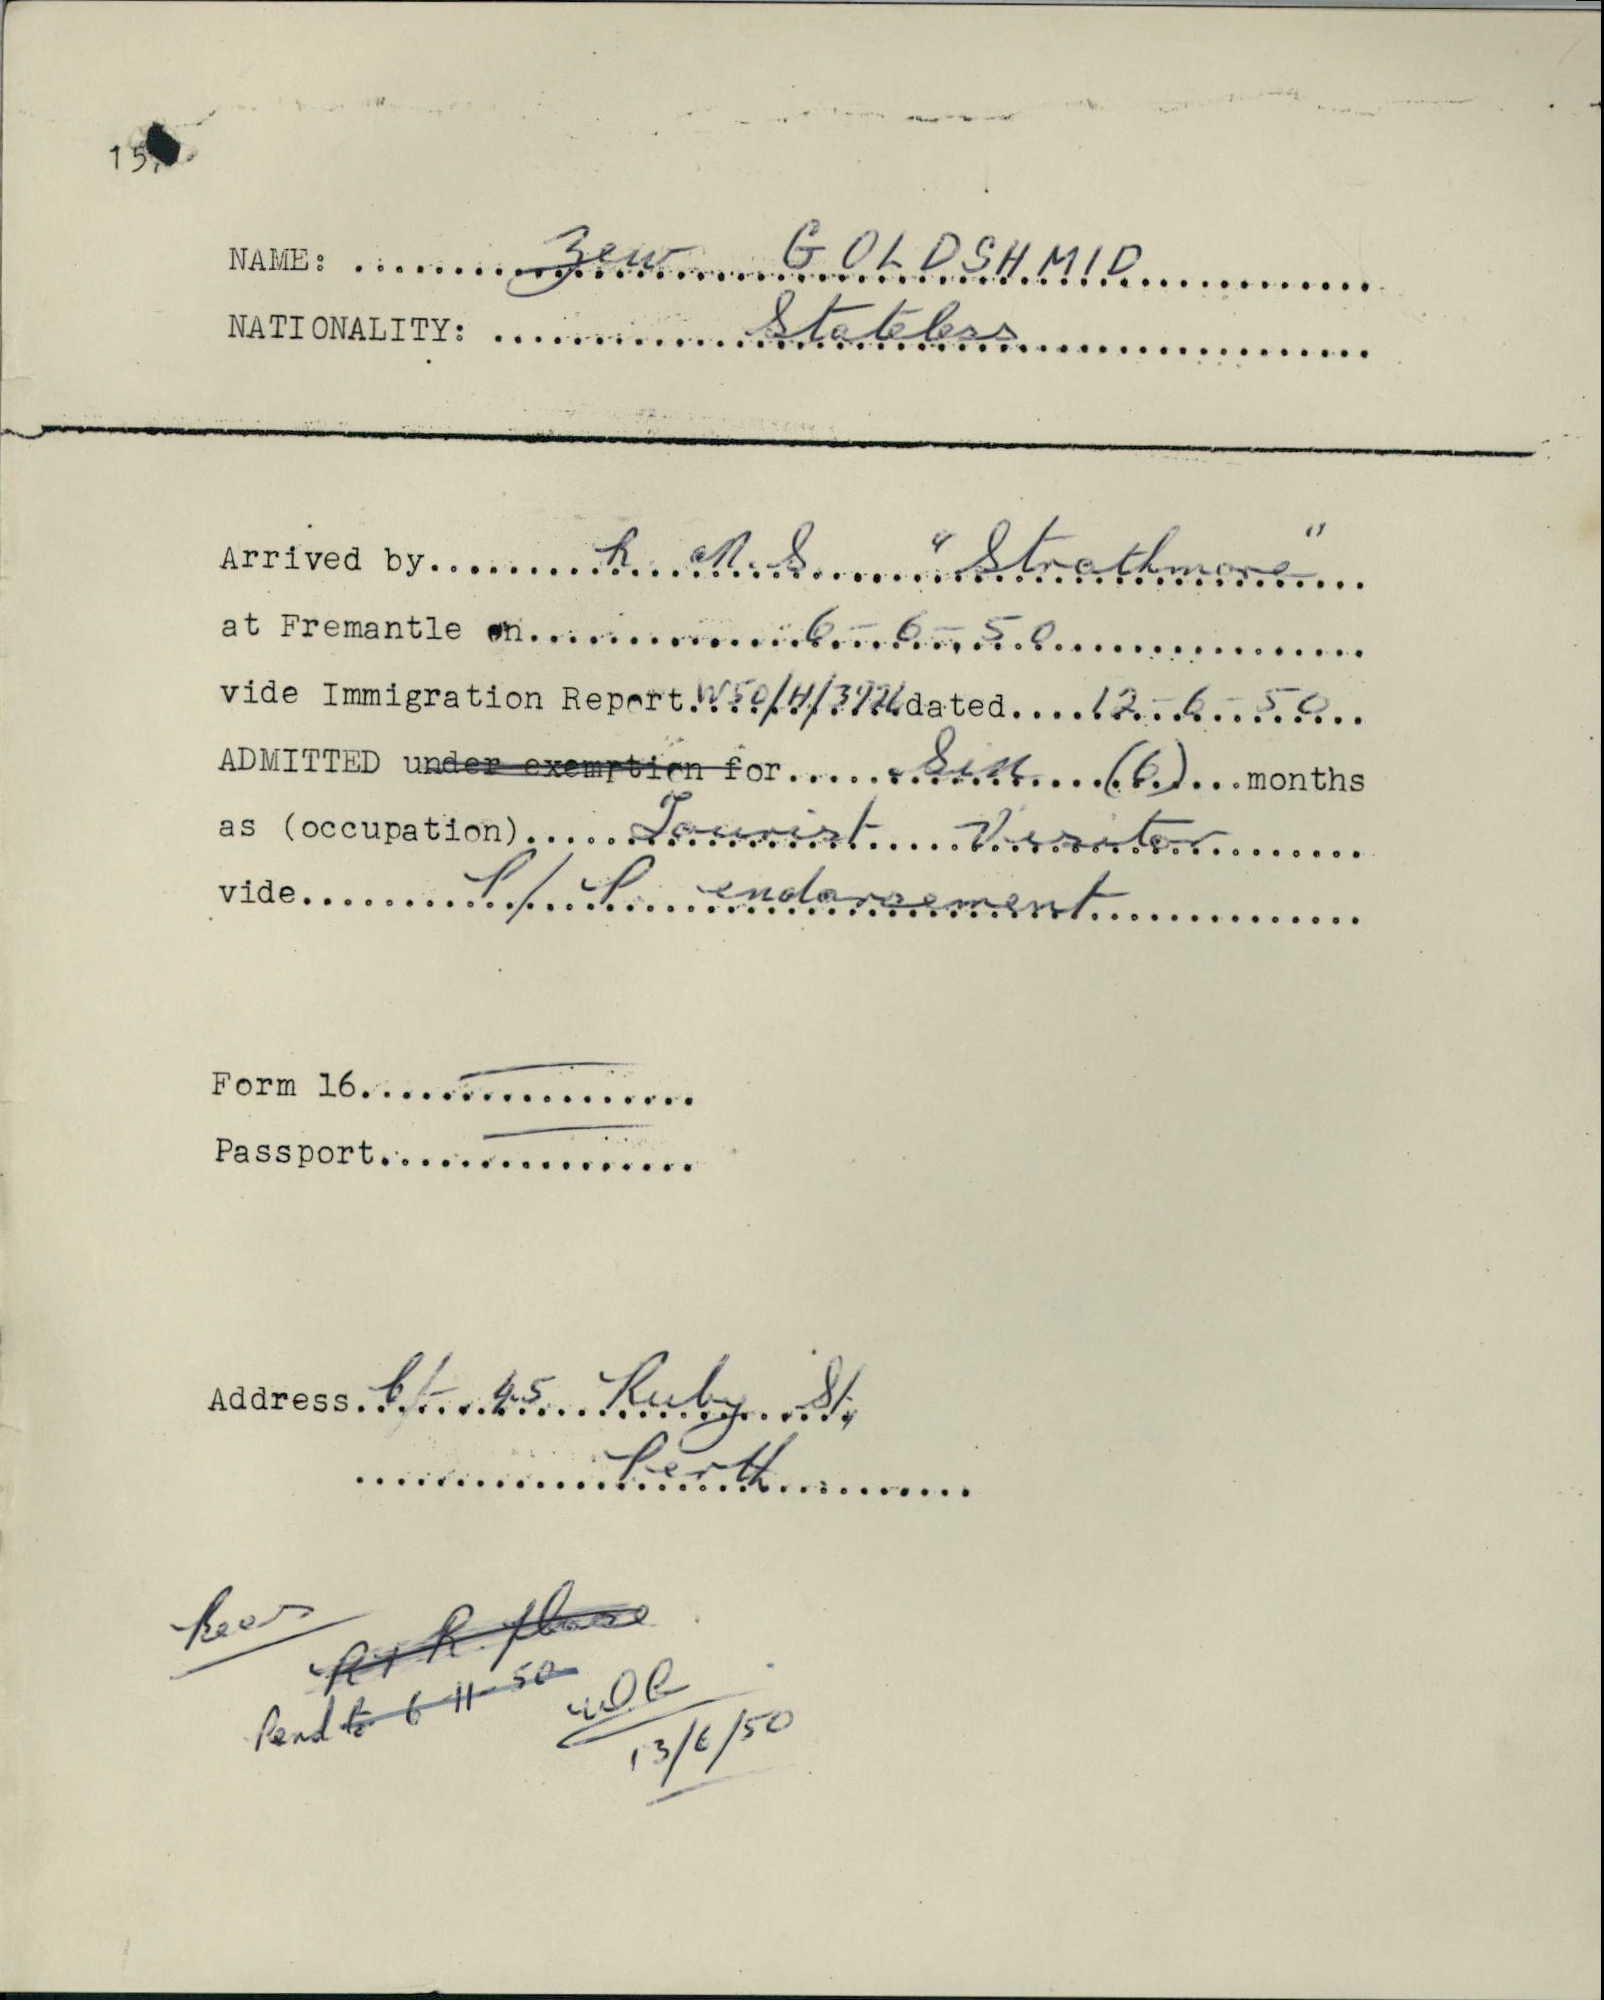 15.
NAME: Zew GOLDSHMID
NATIONALITY: Stateless
Arrived by R.M.S. "Strathmore"
at Fremantle on 6-6-50
vide Immigration Report dated 12-6-50
ADMITTED under exemption for Six (6) months
as (occupation) Tourist Visitor
vide P/P endorsement
Form 16
Passport
Address C/- 45 Ruby St,
Perth
Recs
R & R please
Pend to 6-11-50
13/6/50